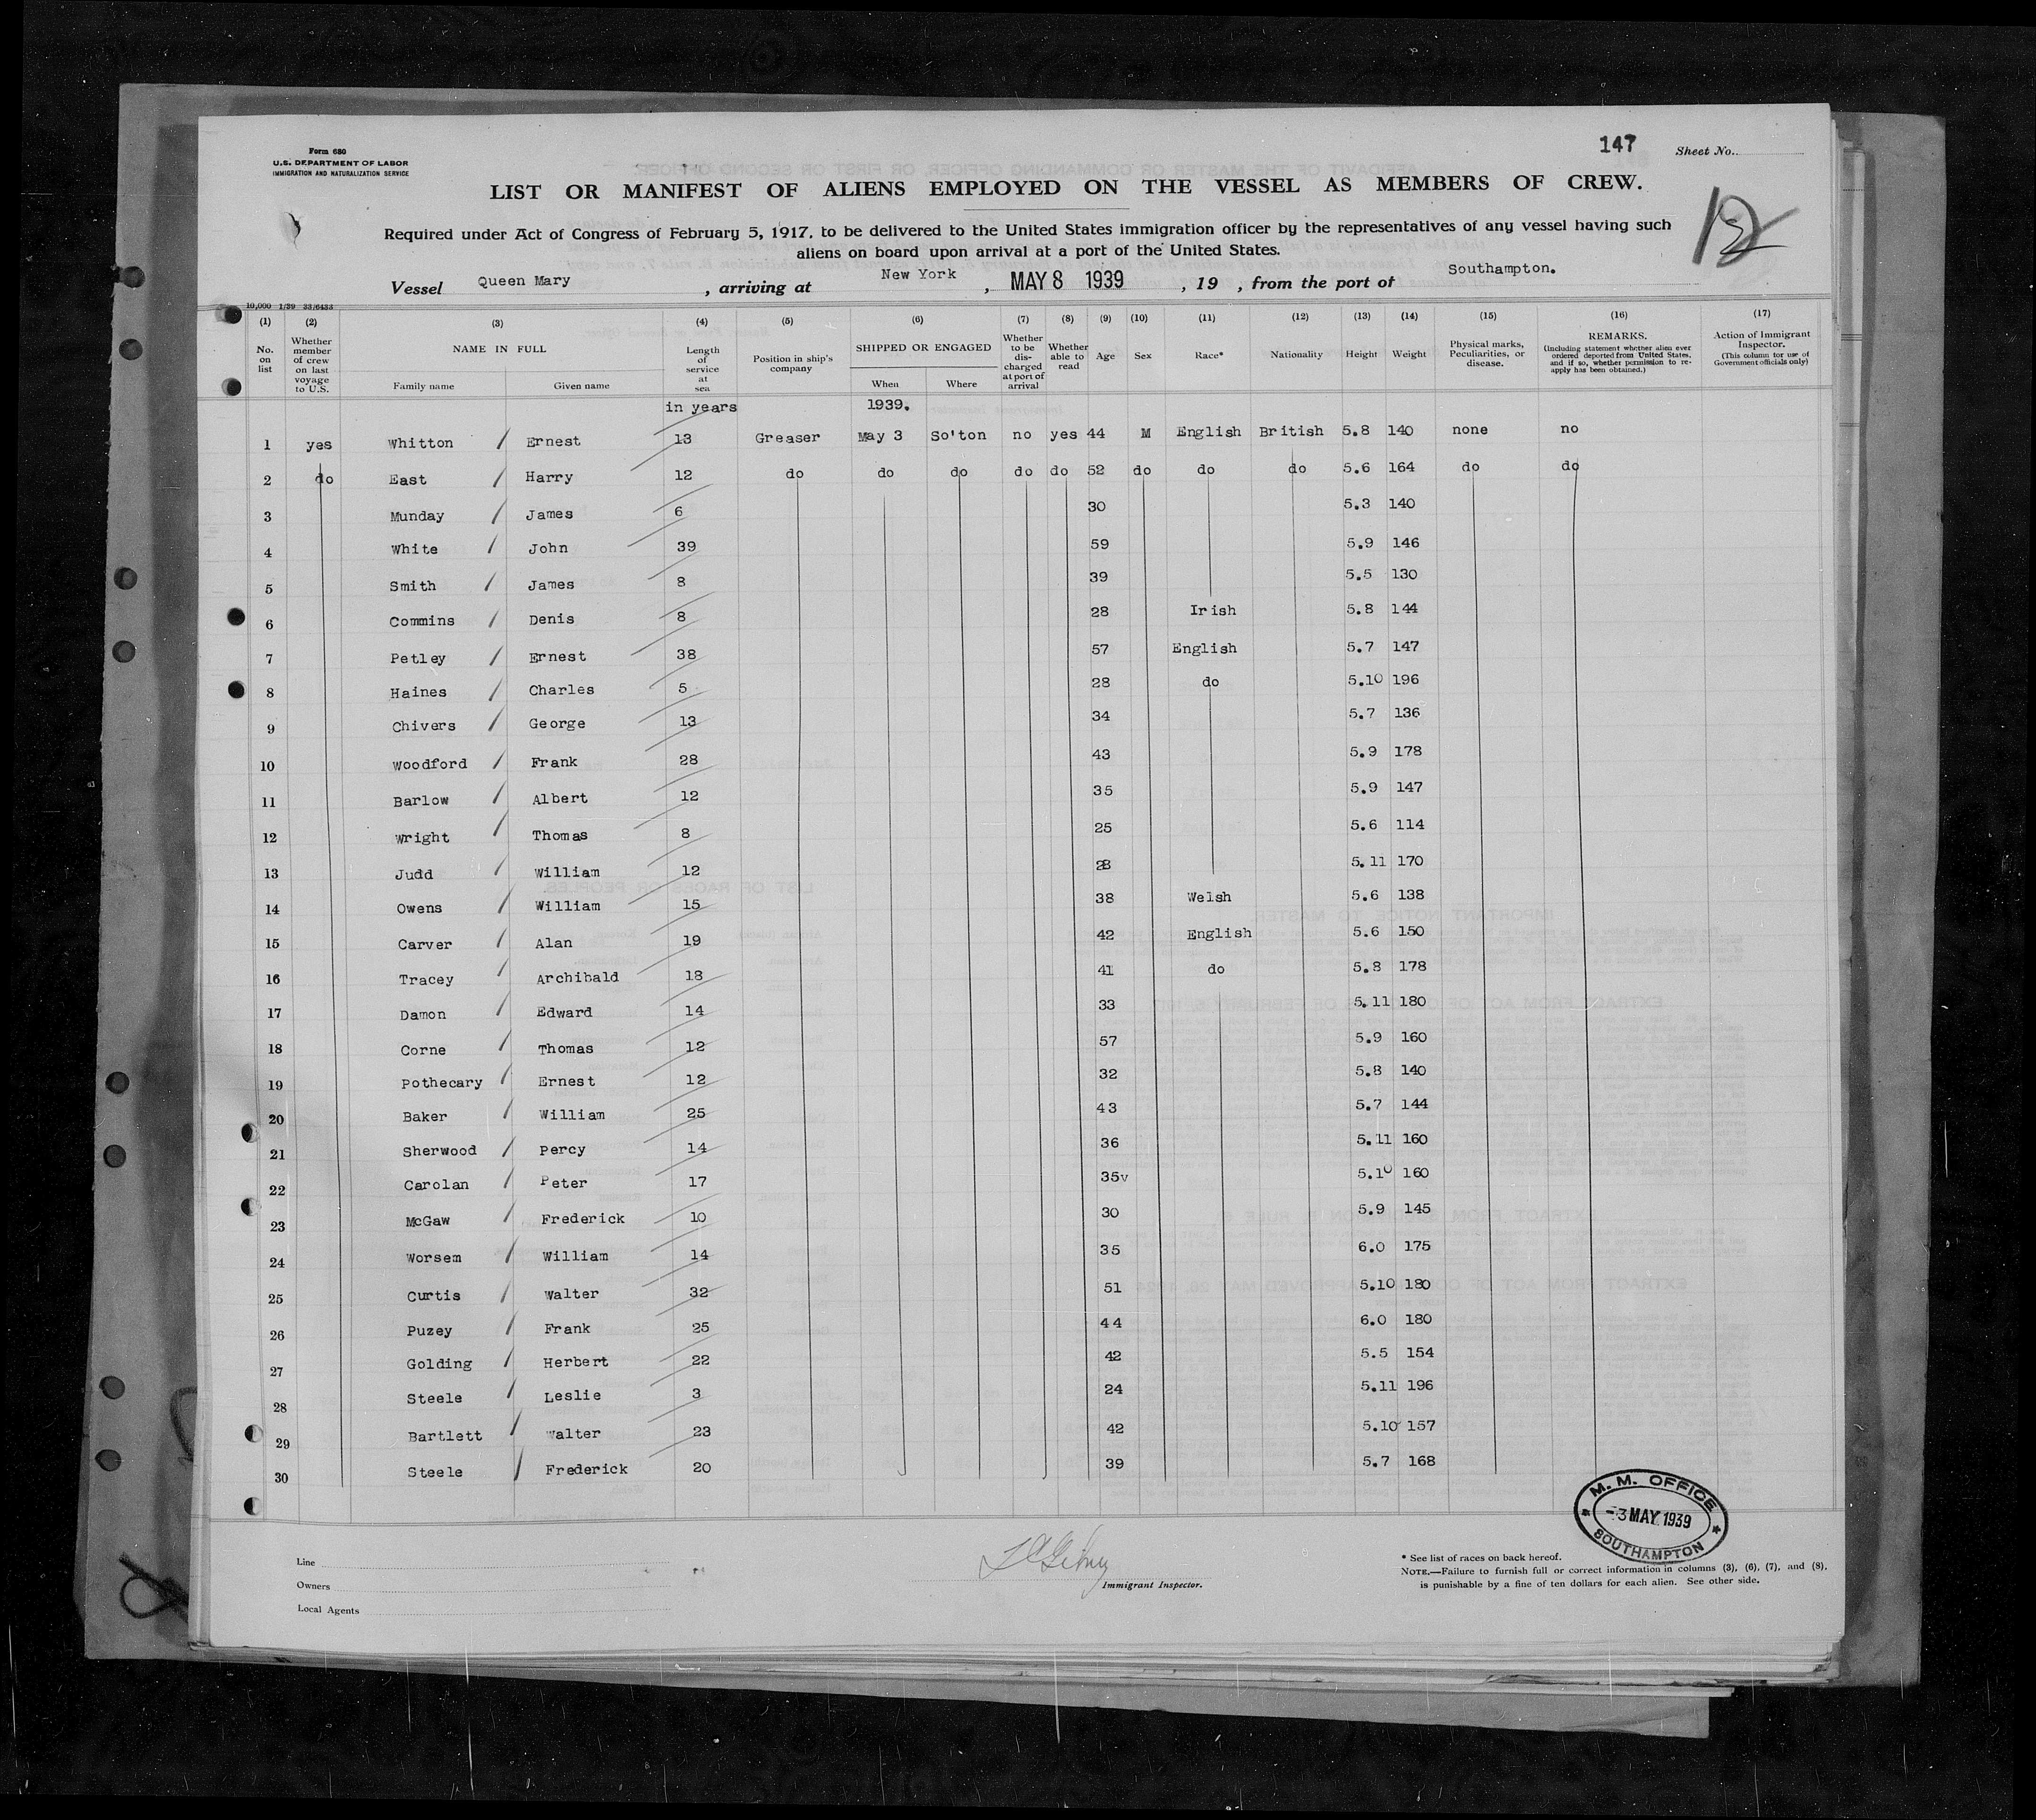 147 Sheet No.
Form 680
U.S. DEPARTMENT OF LABOR
IMMIGRATION AND NATURALIZATION SERVICE
LIST OR MANIFEST OF ALIENS EMPLOYED ON THE VESSEL AS MEMBERS OF CREW.
Required under Act of Congress of February 5, 1917, to be delivered to the United States immigration officer by the representatives of any vessel having such
aliens on board upon arrival at a port of the United States.
Vessel Queen Mary, arriving at New York, MAY 8 1939, 19 , from the port of Southampton.
10,000 1/39 33/6433
(1) (2) (3) (4) (5) (6) (7) (8) (9) (10) (11) (12) (13) (14) (15) (16) (17)
No. on list
Whether member of crew on last voyage to U.S.
NAME IN FULL
Family name Given name
Length of service at sea
Position in ship's company
SHIPPED OR ENGAGED
When Where
Whether to be discharged at port of arrival
Whether able to read
Age
Sex
Race*
Nationality
Height
Weight
Physical marks, Peculiarities, or disease.
REMARKS.
(Including statement whether alien ever ordered deported from United States, and if so, whether permission to reapply has been obtained.)
Action of Immigrant Inspector.
(This column for use of Government officials only)
in years 1939.
1 yes Whitton Ernest 13 Greaser May 3 So'ton no yes 44 M English British 5.8 140 none no
2 do East Harry 12 do do do do do 52 do do do 5.6 164 do do
3 Munday James 6 30 5.3 140
4 White John 39 59 5.9 146
5 Smith James 8 39 5.5 130
6 Commins Denis 8 28 Irish 5.8 144
7 Petley Ernest 38 57 English 5.7 147
8 Haines Charles 5 28 do 5.10 196
9 Chivers George 13 34 5.7 136
10 Woodford Frank 28 43 5.9 178
11 Barlow Albert 12 35 5.9 147
12 Wright Thomas 8 25 5.6 114
13 Judd William 12 28 5.11 170
14 Owens William 15 38 Welsh 5.6 138
15 Carver Alan 19 42 English 5.6 150
16 Tracey Archibald 18 41 do 5.8 178
17 Damon Edward 14 33 5.11 180
18 Corne Thomas 12 57 5.9 160
19 Pothecary Ernest 12 32 5.8 140
20 Baker William 25 43 5.7 144
21 Sherwood Percy 14 36 5.11 160
22 Carolan Peter 17 35v 5.10 160
23 McGaw Frederick 10 30 5.9 145
24 Worsem William 14 35 6.0 175
25 Curtis Walter 32 51 5.10 180
26 Puzey Frank 25 44 6.0 180
27 Golding Herbert 22 42 5.5 154
28 Steele Leslie 3 24 5.11 196
29 Bartlett Walter 23 42 5.10 157
30 Steele Frederick 20 39 5.7 168
M. M. OFFICE
-3 MAY 1939
SOUTHAMPTON
Line
Owners
Local Agents
Immigrant Inspector.
* See list of races on back hereof.
NOTE.—Failure to furnish full or correct information in columns (3), (6), (7), and (8),
is punishable by a fine of ten dollars for each alien. See other side.